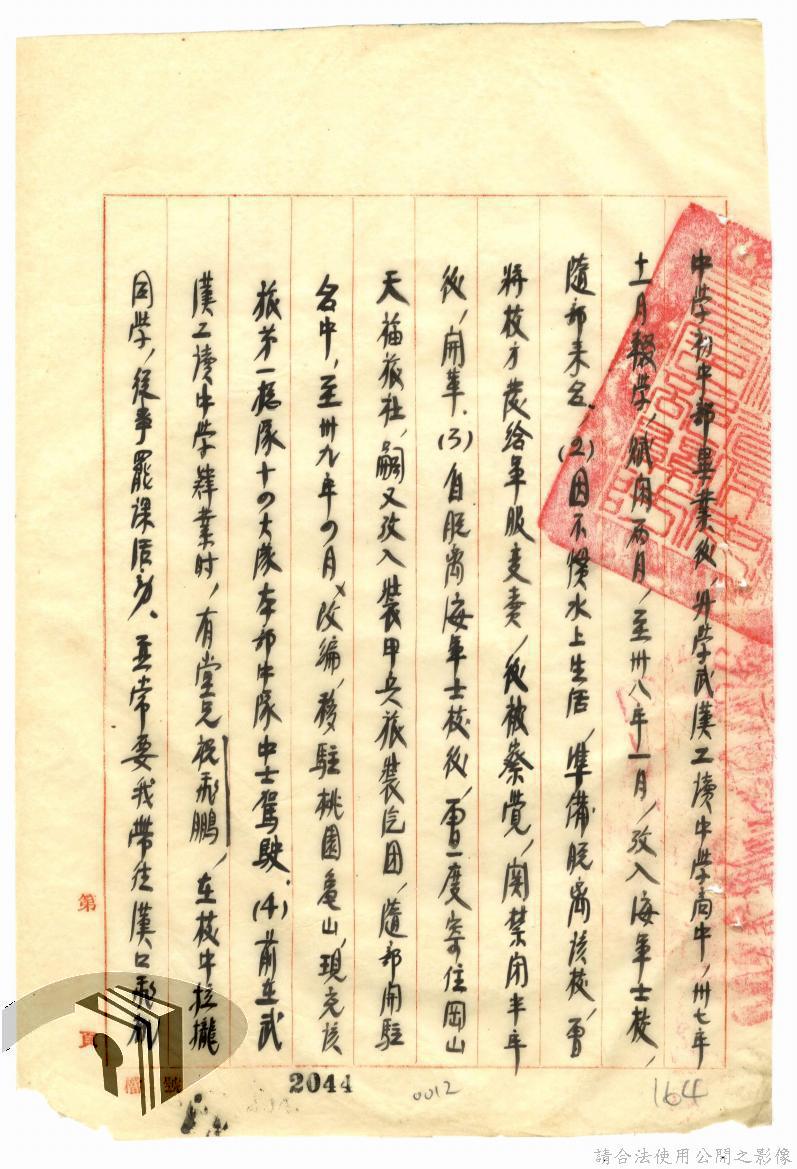 中学初中部畢業後，升学武漢工讀中学高中，卅七年
十一月輟学，賦閑兩月，至卅八年一月，攷入海軍士校，
隨部來台、(2)因不慣水上生活，準備脫离該校，曾
將校方發給軍服变卖，後被察覺，関禁闭半年
後，開革、(3)自脫离海軍士校後，曾一度寄住岡山
天福旅社，嗣又攷入裝甲兵旅裝汽团，隨部開駐
台中，至卅九年四月，改編，移駐桃園龜山，現充該
旅第一総隊十四大隊本部中隊中士駕駛、(4)前在武
漢工讀中学肄業时，有堂兄祝飛鵬，在校中拉攏
同学，從事罷課活动、並常要我帶往漢口飛机
第 頁
檔 號
2044
0012
164
請合法使用公開之影像